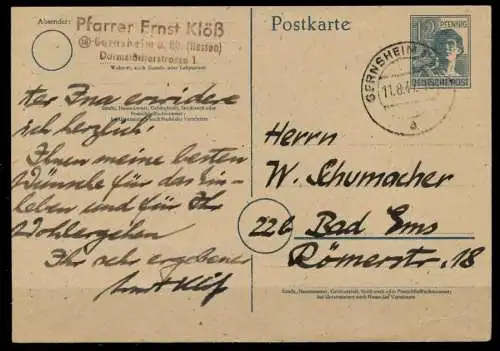 Absender:
Pfarrer Ernst Klöß
(16) Gernsheim a. Rh. (Hessen)
Darmstädterstrasse 1
Wohnort, auch Zustell- oder Leitpostamt
Postkarte
12 PFENNIG
DEUTSCHE POST
GERNSHEIM
11.8.47
a
Straße, Hausnummer, Gebäudeteil, Stockwerk oder
Postschließfachnummer;
bei Untermietern auch Name des Vermieters
erwidere
ich herzlich.
Ihnen meine besten
Wünsche für das Ein-
leben und für Ihr
Wohlergehen
Ihr sehr ergebener
Ernst Klöß
Herrn
W. Schumacher
22b Bad Ems
Römerstr. 18
Straße, Hausnummer, Gebäudeteil, Stockwerk oder Postschließfachnummer;
bei Untermietern auch Name des Vermieters